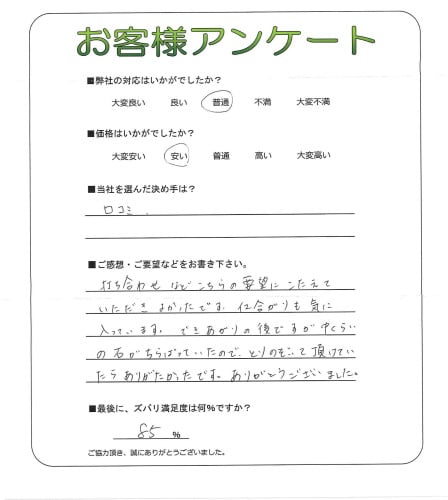 お客様アンケート
■弊社の対応はいかがでしたか?
大変良い 良い 普通 不満 大変不満
■価格はいかがでしたか?
大変安い 安い 普通 高い 大変高い
■当社を選んだ決め手は?
口コミ.
■ご感想・ご要望などをお書き下さい。
打ち合わせなどこちらの要望にこたえて
いただきよかったです。仕合がりも気に
入っています。できあがりの後ですが中くらい
の石がちらばっていたので、とりのぞいて頂けてい
たらありがたかったです。ありがとうございました。
■最後に、ズバリ満足度は何%ですか?
85 %
ご協力頂き、誠にありがとうございました。